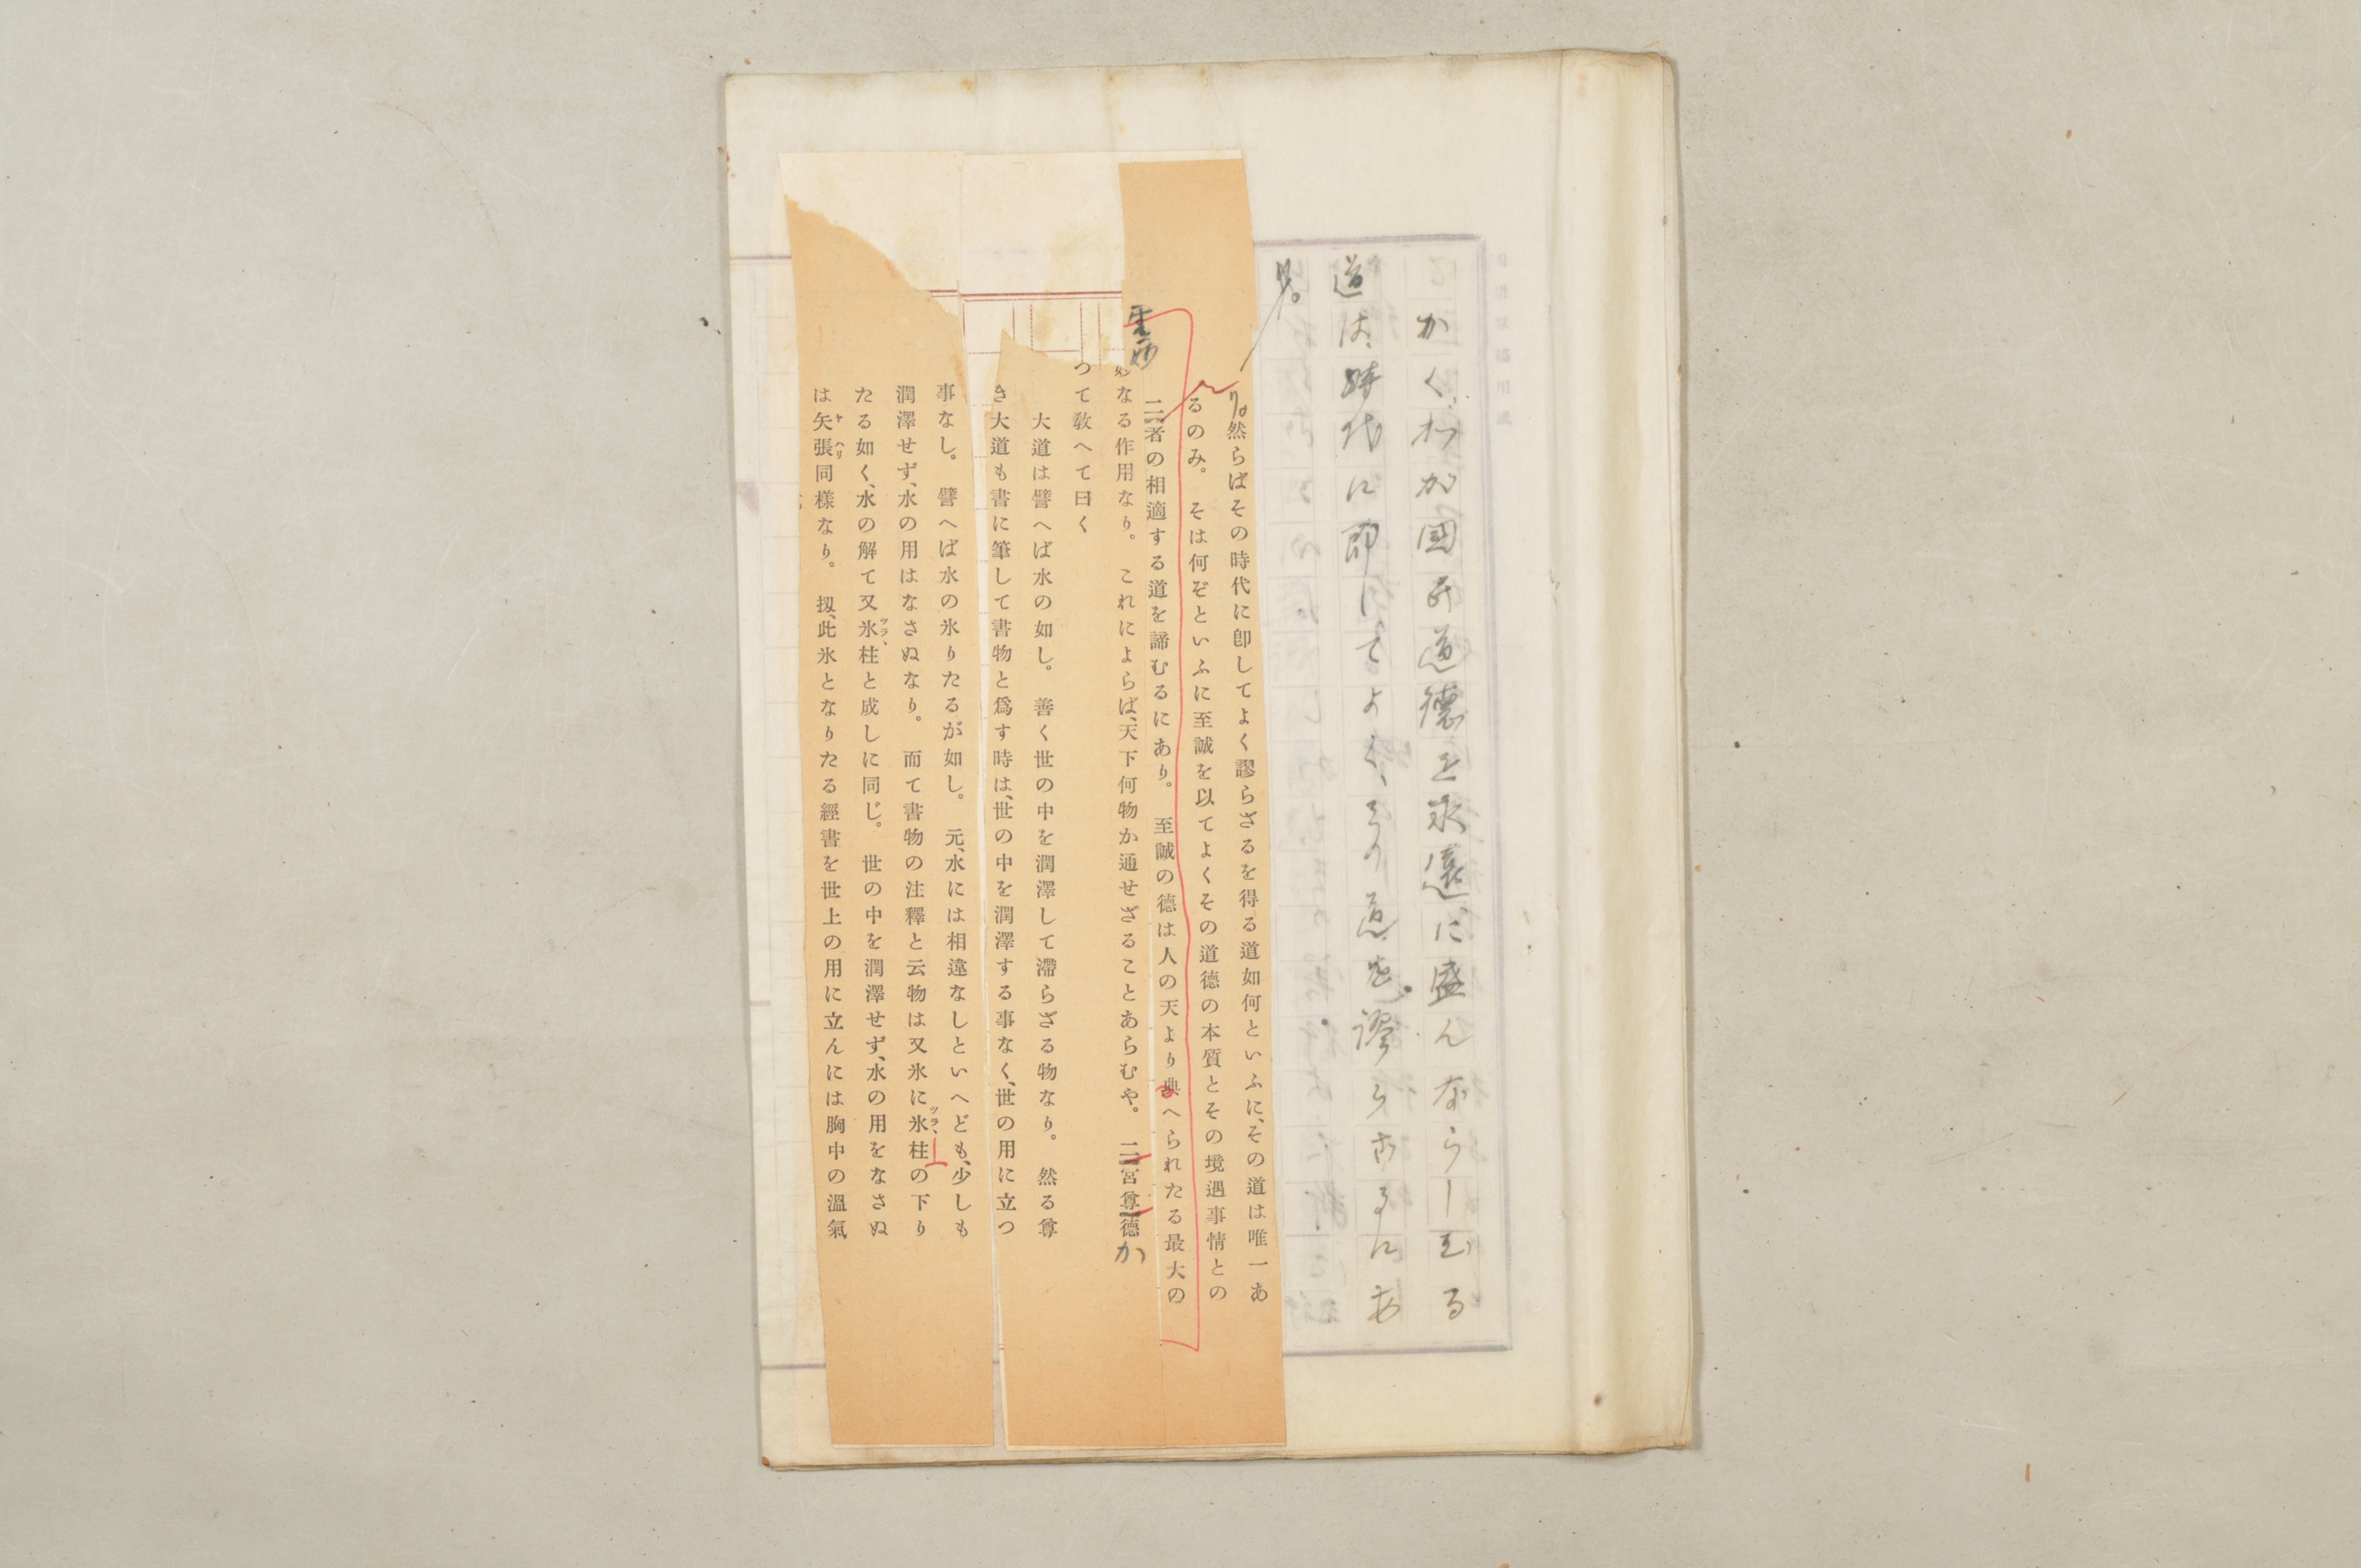 かくわが國民道德を永遠に盛んならしむる
道は、時代に即してよく、その道を謬らざるにあ
り。
り。然らばその時代に卽してよく謬らざるを得る道如何といふに、その道は唯一あ
るのみ。そは何ぞといふに至誠を以てよくその道德の本質とその境遇事情との
二者の相適する道を諦むるにあり。至誠の德は人の天より與へられたる最大の
靈妙
妙なる作用なり。これによらば、天下何物か通せざることあらむや。二宮尊德
か
つて敎へて曰く
大道は譬へば水の如し。善く世の中を潤澤して滯らざる物なり。然る尊
き大道も書に筆して書物と爲す時は、世の中を潤澤する事なく、世の用に立つ
事なし。譬へば水の氷りたるが如し。元、水には相違なしといへども、少しも
潤澤せず、水の用はなさぬなり。而て書物の注釋と云物は又氷に氷柱の下り
ツラヽ
たる如く、水の解て又氷柱と成しに同じ。世の中を潤澤せず、水の用をなさぬ
ツラヽ
は矢張同樣なり。扨、此氷となりたる經書を世上の用に立んには胸中の溫氣
ヤハリ